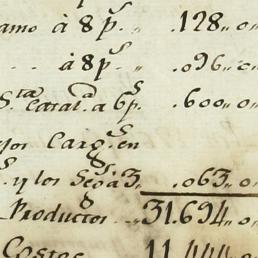 amo à 8 p.s .128,,0
à 8 p.s ,, .096,,0
S.ta Catal.a à 6 p.s .600,,0
Carg.s en
y los Seg.s à 3,, .063,,0
Productos 31.694,,0
Costos 11.444,,0